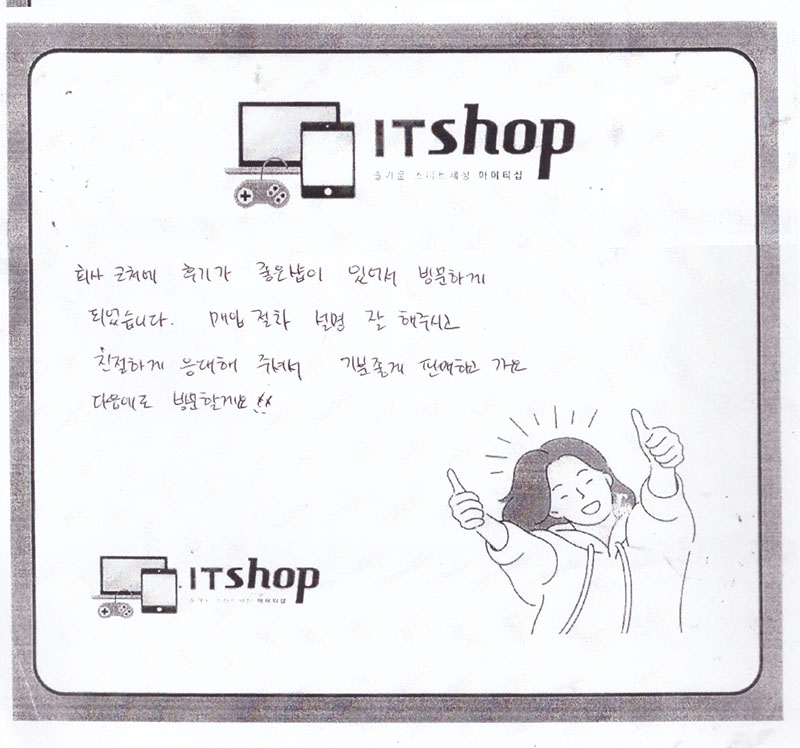 ITshop
즐거운 스마트세상 아이티샵
회사 근처에 후기가 좋은샵이 있어서 방문하게
되었습니다. 매입 절차 설명 잘 해주시고
친절하게 응대해 주셔서 기분좋게 판매하고 가요
다음에도 방문할게요!!
ITshop
아이티샵